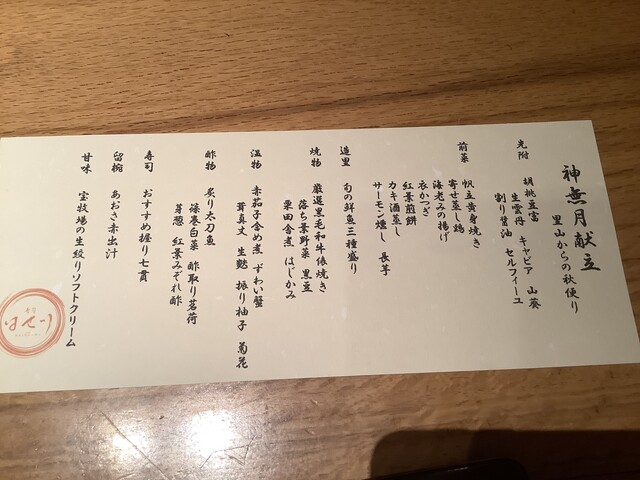 神無月献立
里山からの秋便り
先附
胡桃豆富
生雲丹 キャビア 山葵
割り醤油 セルフィーユ
前菜
帆立黄身焼き
寄せ蒸し鶏
海老みの揚げ
衣かつぎ
紅葉煎餅
カキ酒蒸し
サーモン燻し 長芋
造里
旬の鮮魚三種盛り
焼物
厳選黒毛和牛俵焼き
落ち葉野菜 黒豆
栗田舎煮 はじかみ
温物
赤茄子含め煮 ずわい蟹
茸真丈 生麩 振り柚子 菊花
酢物
炙り太刀魚
湯巻白菜 酢取り茗荷
芽葱 紅葉みぞれ酢
寿司
おすすめ握り七貫
留椀
あおさ赤出汁
甘味
宝牧場の生絞りソフトクリーム